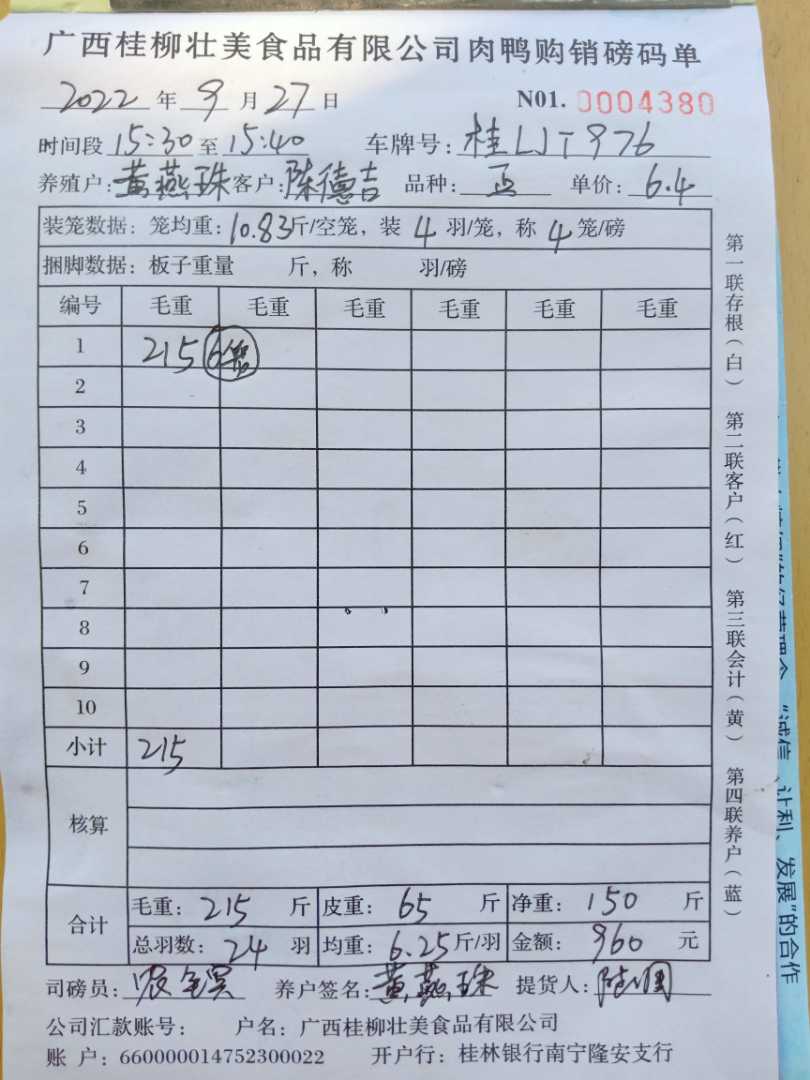 广西桂柳壮美食品有限公司肉鸭购销磅码单
2022年9月27日 N01. 0004380
时间段15:30至15:40 车牌号:桂LJT976
养殖户:黄燕珠客户:陈德吉 品种:正 单价:6.4
装笼数据:笼均重:10.83斤/空笼,装4羽/笼,称4笼/磅
捆脚数据:板子重量 斤,称 羽/磅
编号 毛重 毛重 毛重 毛重 毛重 毛重
1 215 6笼
2
3
4
5
6
7
8
9
10
小计 215
核算
合计 毛重:215斤 皮重:65斤 净重:150斤
总羽数:24羽 均重:6.25斤/羽 金额:960元
司磅员: 养户签名:黄燕珠 提货人:
公司汇款账号: 户名:广西桂柳壮美食品有限公司
账 户:660000014752300022 开户行:桂林银行南宁隆安支行
第一联存根(白) 第二联客户(红) 第三联会计(黄) 第四联养户(蓝)
“诚信、让利、发展”的合作